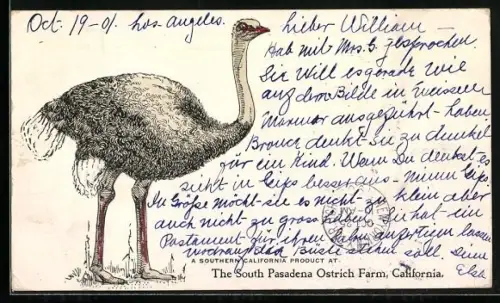 Oct. 19-01. Los-Angeles.
Lieber William -
Hab mit Mrs. G. gesprochen.
Sie will es gerade wie
auf dem Bilde in weissen
Marmor ausgeführt - haben,
Bronce denkt sie zu dunkel
für ein Kind. Wenn Du denkst es
sieht in Gips besser aus - nimm Gips.
In Größe möcht sie es nicht zu klein aber
auch nicht zu gross haben. Sie hat ein
Postament für ihren anfertigen lassen
worauf die Büste stehen soll. Deine
Elsa
A SOUTHERN CALIFORNIA PRODUCT AT-
The South Pasadena Ostrich Farm, California.